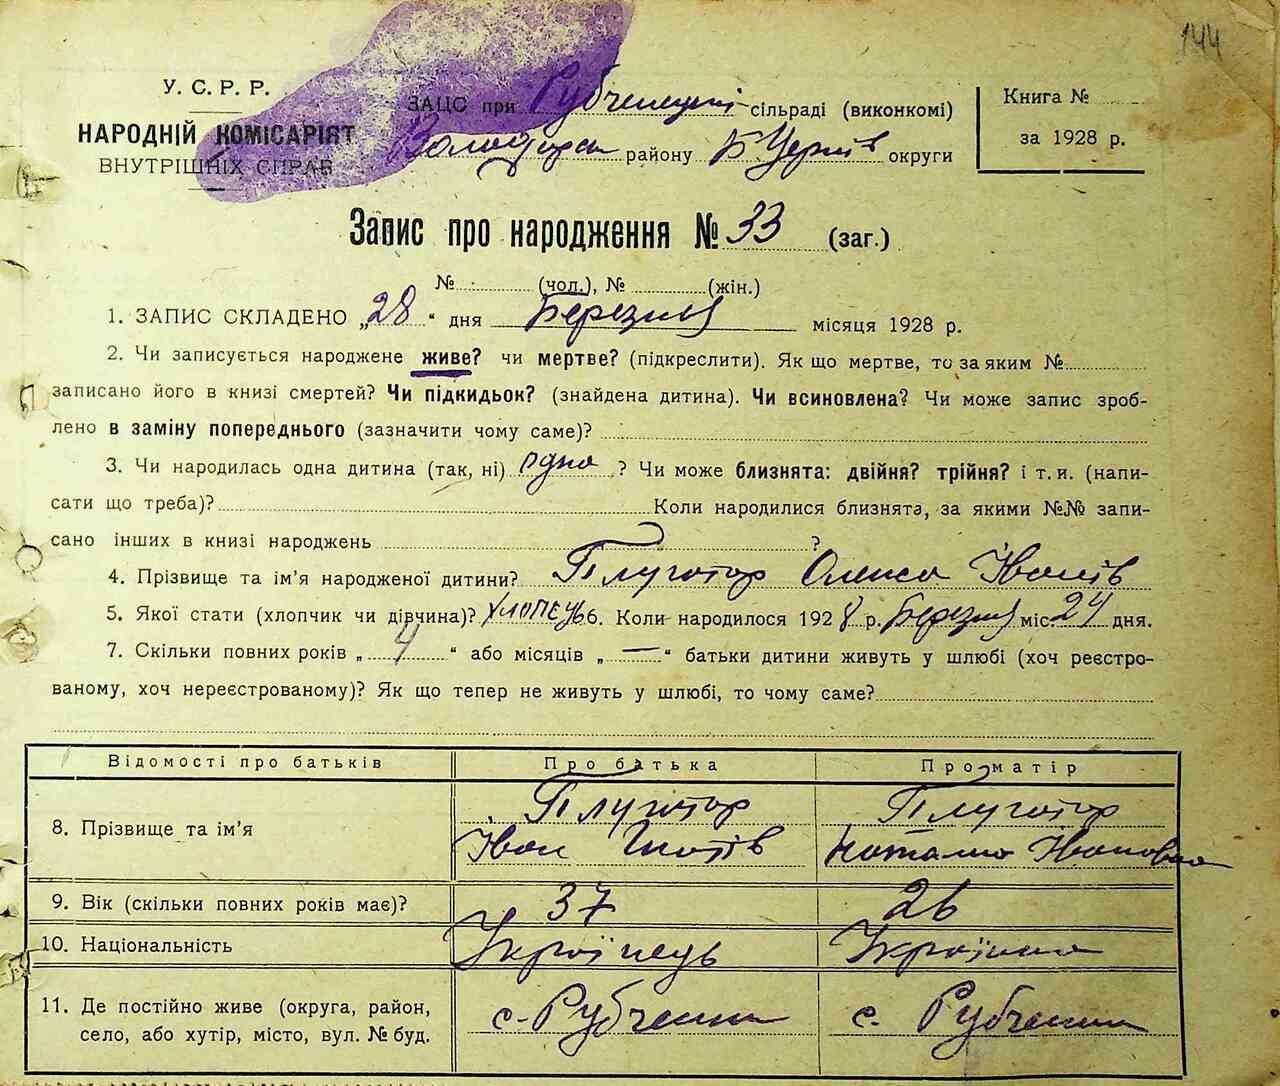 144
У. С. Р. Р.
НАРОДНІЙ КОМІСАРІЯТ
ВНУТРІШНІХ СПРАВ
ЗАЦС при Рубченецкі сільраді (виконкомі)
Володарск району Б Церків округи
Книга №
за 1928 р.
Запис про народження № 33 (заг.)
№ (чол.), № (жін.)
1. ЗАПИС СКЛАДЕНО „28“ дня Березня місяця 1928 р.
2. Чи записується народжене живе? чи мертве? (підкреслити). Як що мертве, то за яким №
записано його в книзі смертей? Чи підкидьок? (знайдена дитина). Чи всиновлена? Чи може запис зроб-
лено в заміну попереднього (зазначити чому саме)?
3. Чи народилась одна дитина (так, ні) одна ? Чи може близнята: двійня? трійня? і т. и. (напи-
сати що треба)? Коли народилися близнята, за якими №№ запи-
сано інших в книзі народжень ?
4. Прізвище та ім’я народженої дитини? Плугатор Олекса Іванів
5. Якої стати (хлопчик чи дівчина)? хлопець 6. Коли народилося 1928 р. Березня міс 24 дня.
7. Скільки повних років „ 4 “ або місяців „ — “ батьки дитини живуть у шлюбі (хоч реєстро-
ваному, хоч нереєстрованому)? Як що тепер не живуть у шлюбі, то чому саме?
Відомості про батьків Про батька Про матір
8. Прізвище та ім’я
Плугатор Плугатор
Іван Наталка Івановна
9. Вік (скільки повних років має)? 37 26
10. Національність Українець Українка
11. Де постійно живе (округа, район,
село, або хутір, місто, вул. № буд.
с. Рубченки с. Рубченки